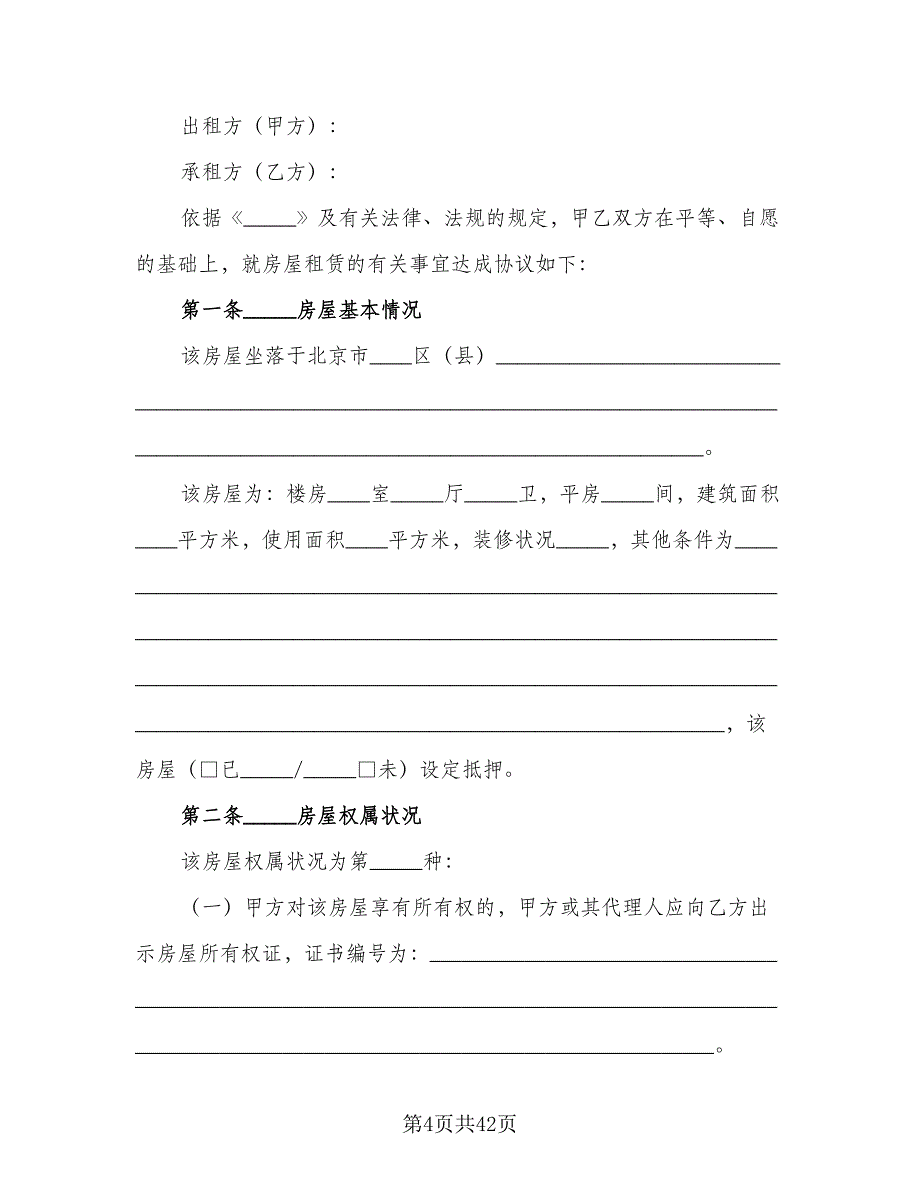 出租方（甲方）：
承租方（乙方）：
依据《_____》及有关法律、法规的规定，甲乙双方在平等、自愿
的基础上，就房屋租赁的有关事宜达成协议如下：
第一条_____房屋基本情况
该房屋坐落于北京市____区（县）___________________________
_____________________________________________________________
______________________________________________________。
该房屋为：楼房____室_____厅_____卫，平房_____间，建筑面积
____平方米，使用面积____平方米，装修状况_____，其他条件为____
_____________________________________________________________
_____________________________________________________________
_____________________________________________________________
________________________________________________________，该
房屋（□已_____/_____□未）设定抵押。
第二条_____房屋权属状况
该房屋权属状况为第_____种：
（一）甲方对该房屋享有所有权的，甲方或其代理人应向乙方出
示房屋所有权证，证书编号为：_________________________________
_____________________________________________________________
_______________________________________________________。
第4页共42页